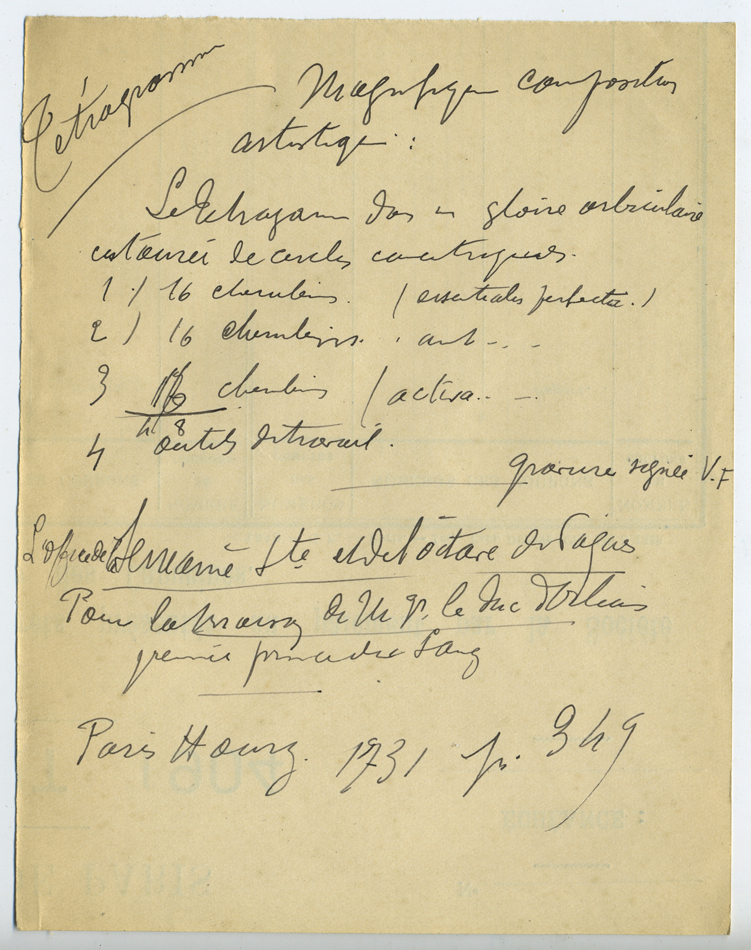 Tétragramme
Magnifique composition
artistique :
Le Tétragramme dans un gloire orbiculaire
entourée de cercles concentriques.
1 / 16 cherubins. ( essentiales perfecta. )
2 ) 16 cherubins. aut - . -
3 16 cherubins ( activa .. -
4 8
4 outils de travail.
gravure signée V. F
L'office de la Semaine Ste et de l'octave de Pâques
Pour la maison de Mgr. le duc d'Orléans
premier prince du Sang
Paris Houry. 1731 p. 349